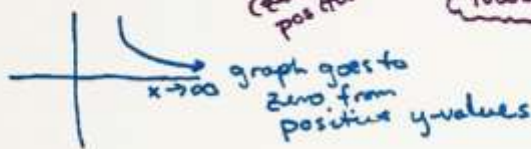 posit
x→∞ graph goes to
zero from
positive y-values